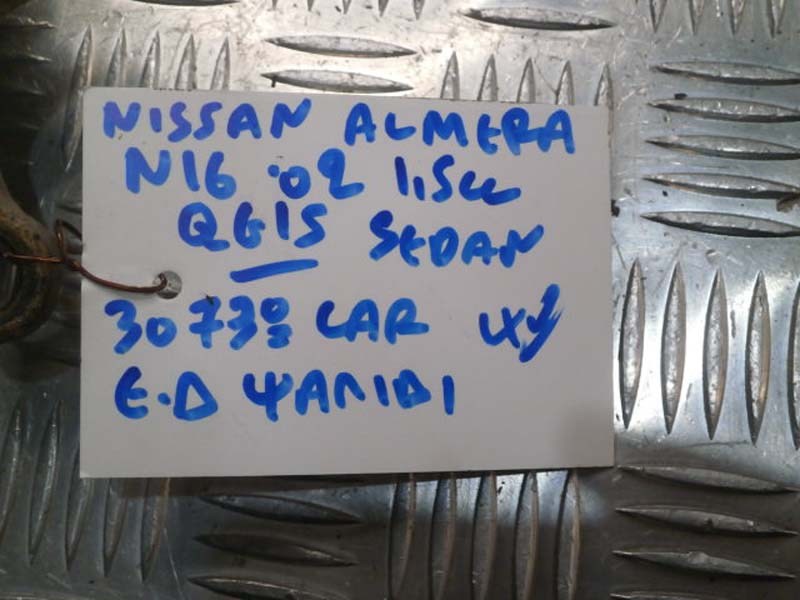 NISSAN ALMERA
N16 '02 1,5cc
QG15 SEDAN
CAR
E.Δ ΨΑΛΙΔΙ